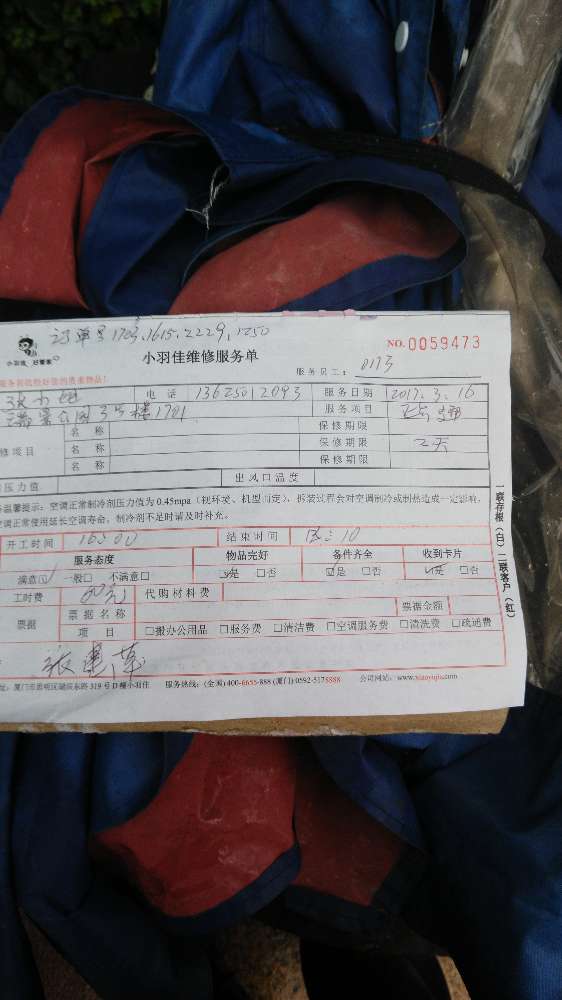 订单号1703.1615.2229.1250
小羽佳 好管家
NO.0059473
小羽佳维修服务单
服务员工: 0173
电话 13625012093 服务日期 2017.3.16
景公园3号楼1701 服务项目
修项目 名称 保修期限
名称 保修期限 2天
名称 保修期限
压力值 出风口温度
温馨提示:空调正常制冷剂压力值为0.45mpa(视环境、机型而定)、拆装过程会对空调制冷或制热造成一定影响,
调正常使用延长空调寿命,制冷剂不足时请及时补充。
开工时间 16:00 结束时间
服务态度 物品完好 备件齐全 收到卡片
满意☑ 一般□ 不满意□ ☑是 □否 ☑是 □否 ☑是 □否
工时费 代购材料费
票据 票据名称 票据金额
项目 □搬办公用品 □服务费 □清洁费 □空调服务费 □清洗费 □疏通费
一联存根(白)二联客户(红)
服务热线:(全国)400-6655-888 (厦门)0592-5178888 公司网站:www.xiaoyujia.com